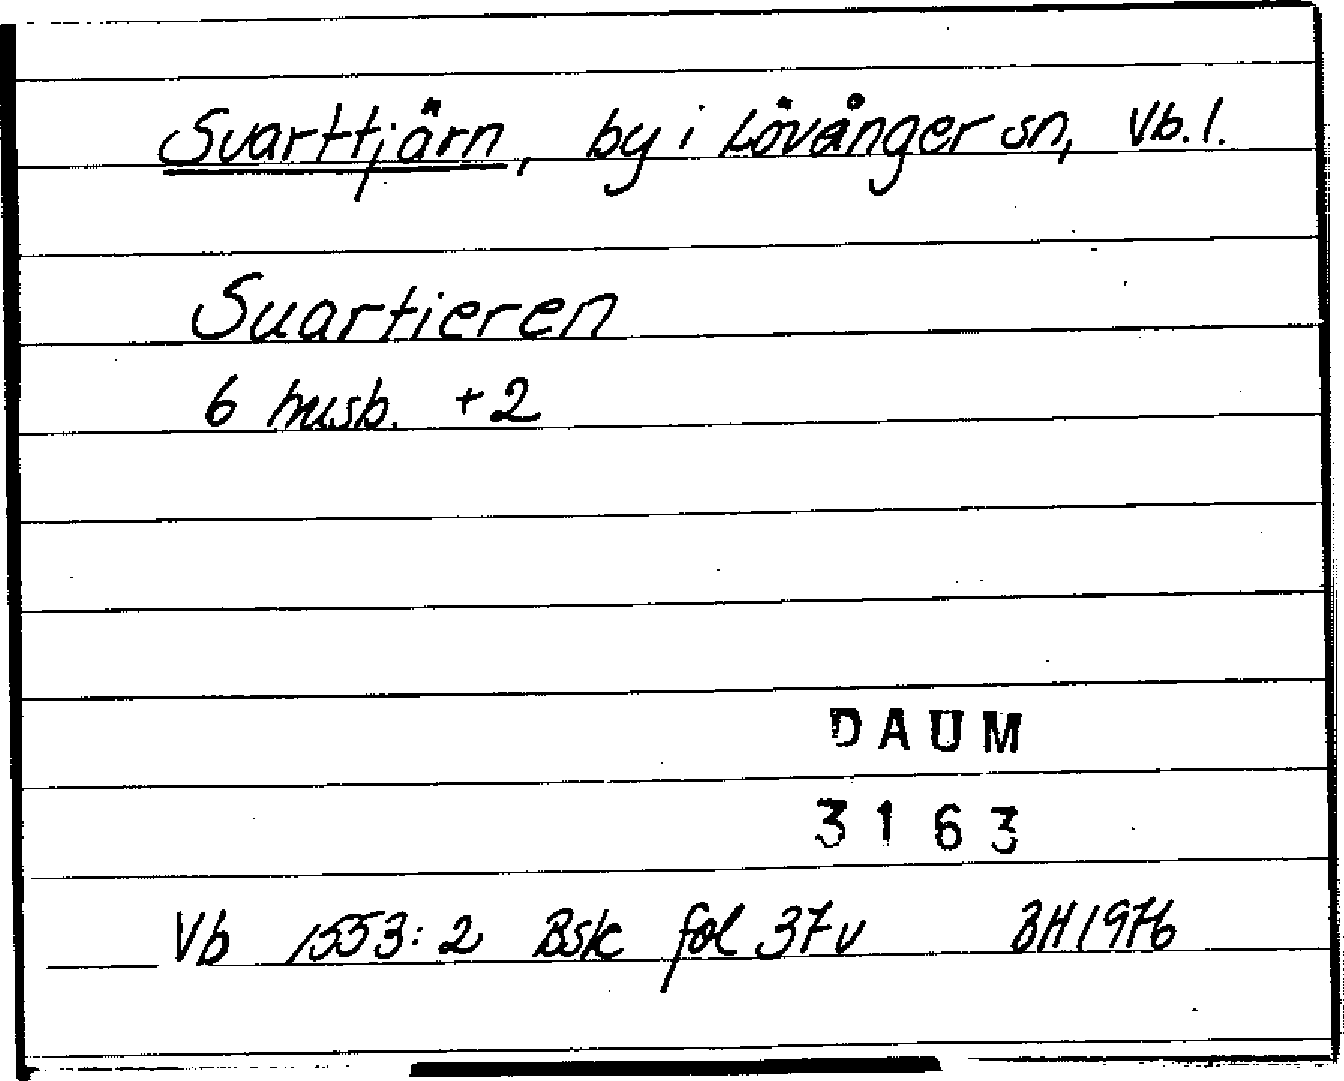 Svarttjärn, by i Lövånger sn, Vb. l.
Suartieren
6 husb. +2
DAUM
3163
Vb 1553:2 Bsk fol 37v BH 1976